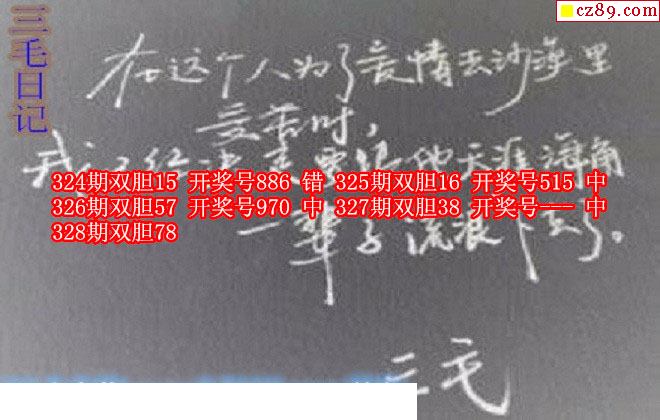 cz89.com
三毛日记
在这个人为了爱情去沙漠里
受苦时,
我已经决定要跟他天涯海角
324期双胆15 开奖号886 错 325期双胆16 开奖号515 中
326期双胆57 开奖号970 中 327期双胆38 开奖号--- 中
328期双胆78
一辈子流浪下去了。
三毛